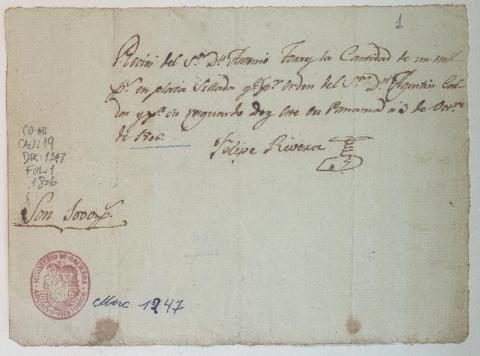 1
Recivi del S.r D.n Antonio Torres la Cantidad de un mil
p.s en plata Sellada q.e p.r orden del S.r D.n Agustin
y p.a su resguardo doy este en Panama a 3 de
de 1806.
Felipe Rivera
CO-MI
CAJ: 19
DR: 1247
FOL. 1
1806
Son 1000 p.s
MINISTERIO DE HACIENDA
ARCHIVO HISTORICO
Misc. 1247